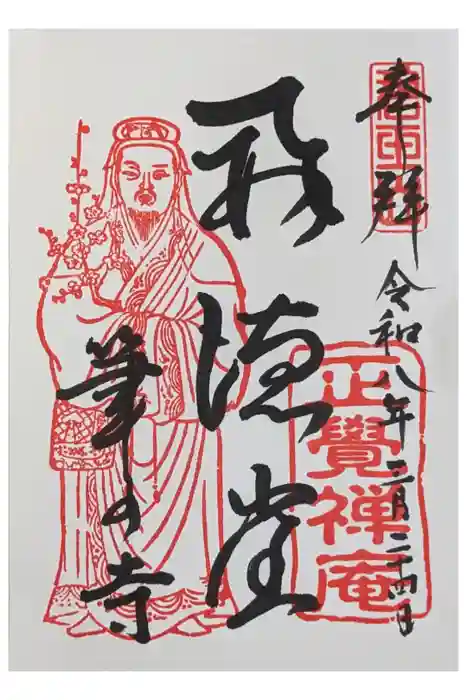 奉拝
令和八年三月二十四日
正覺禅庵
飛徳堂
筆の寺